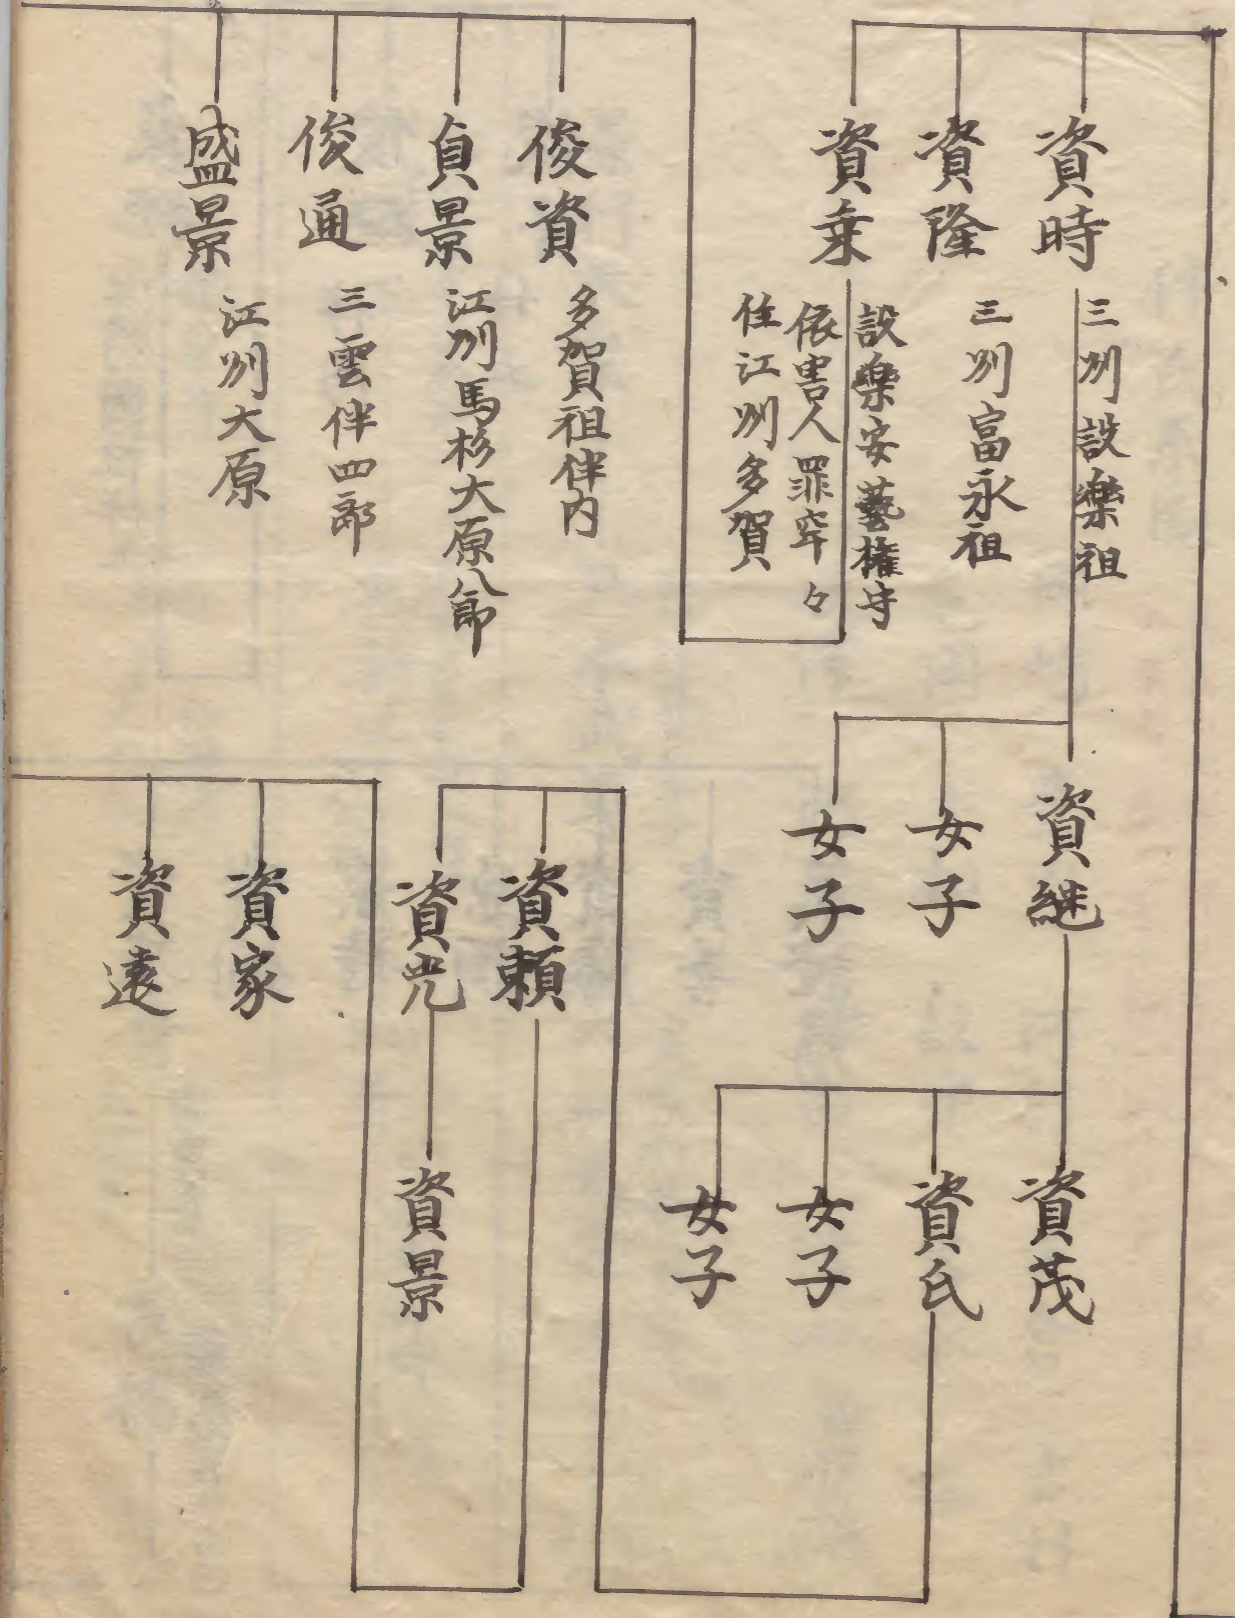 資時
三州設樂祖
資隆
三州富永祖
資乗
設樂安藝權守
依害人罪牢々
住江州多賀
俊資
多賀祖伴内
貞景
江州馬杉大原八郎
俊通
三雲伴四郎
盛景
江州大原
資継
女子
女子
資茂
資氏
女子
女子
資頼
資光
資景
資家
資遠